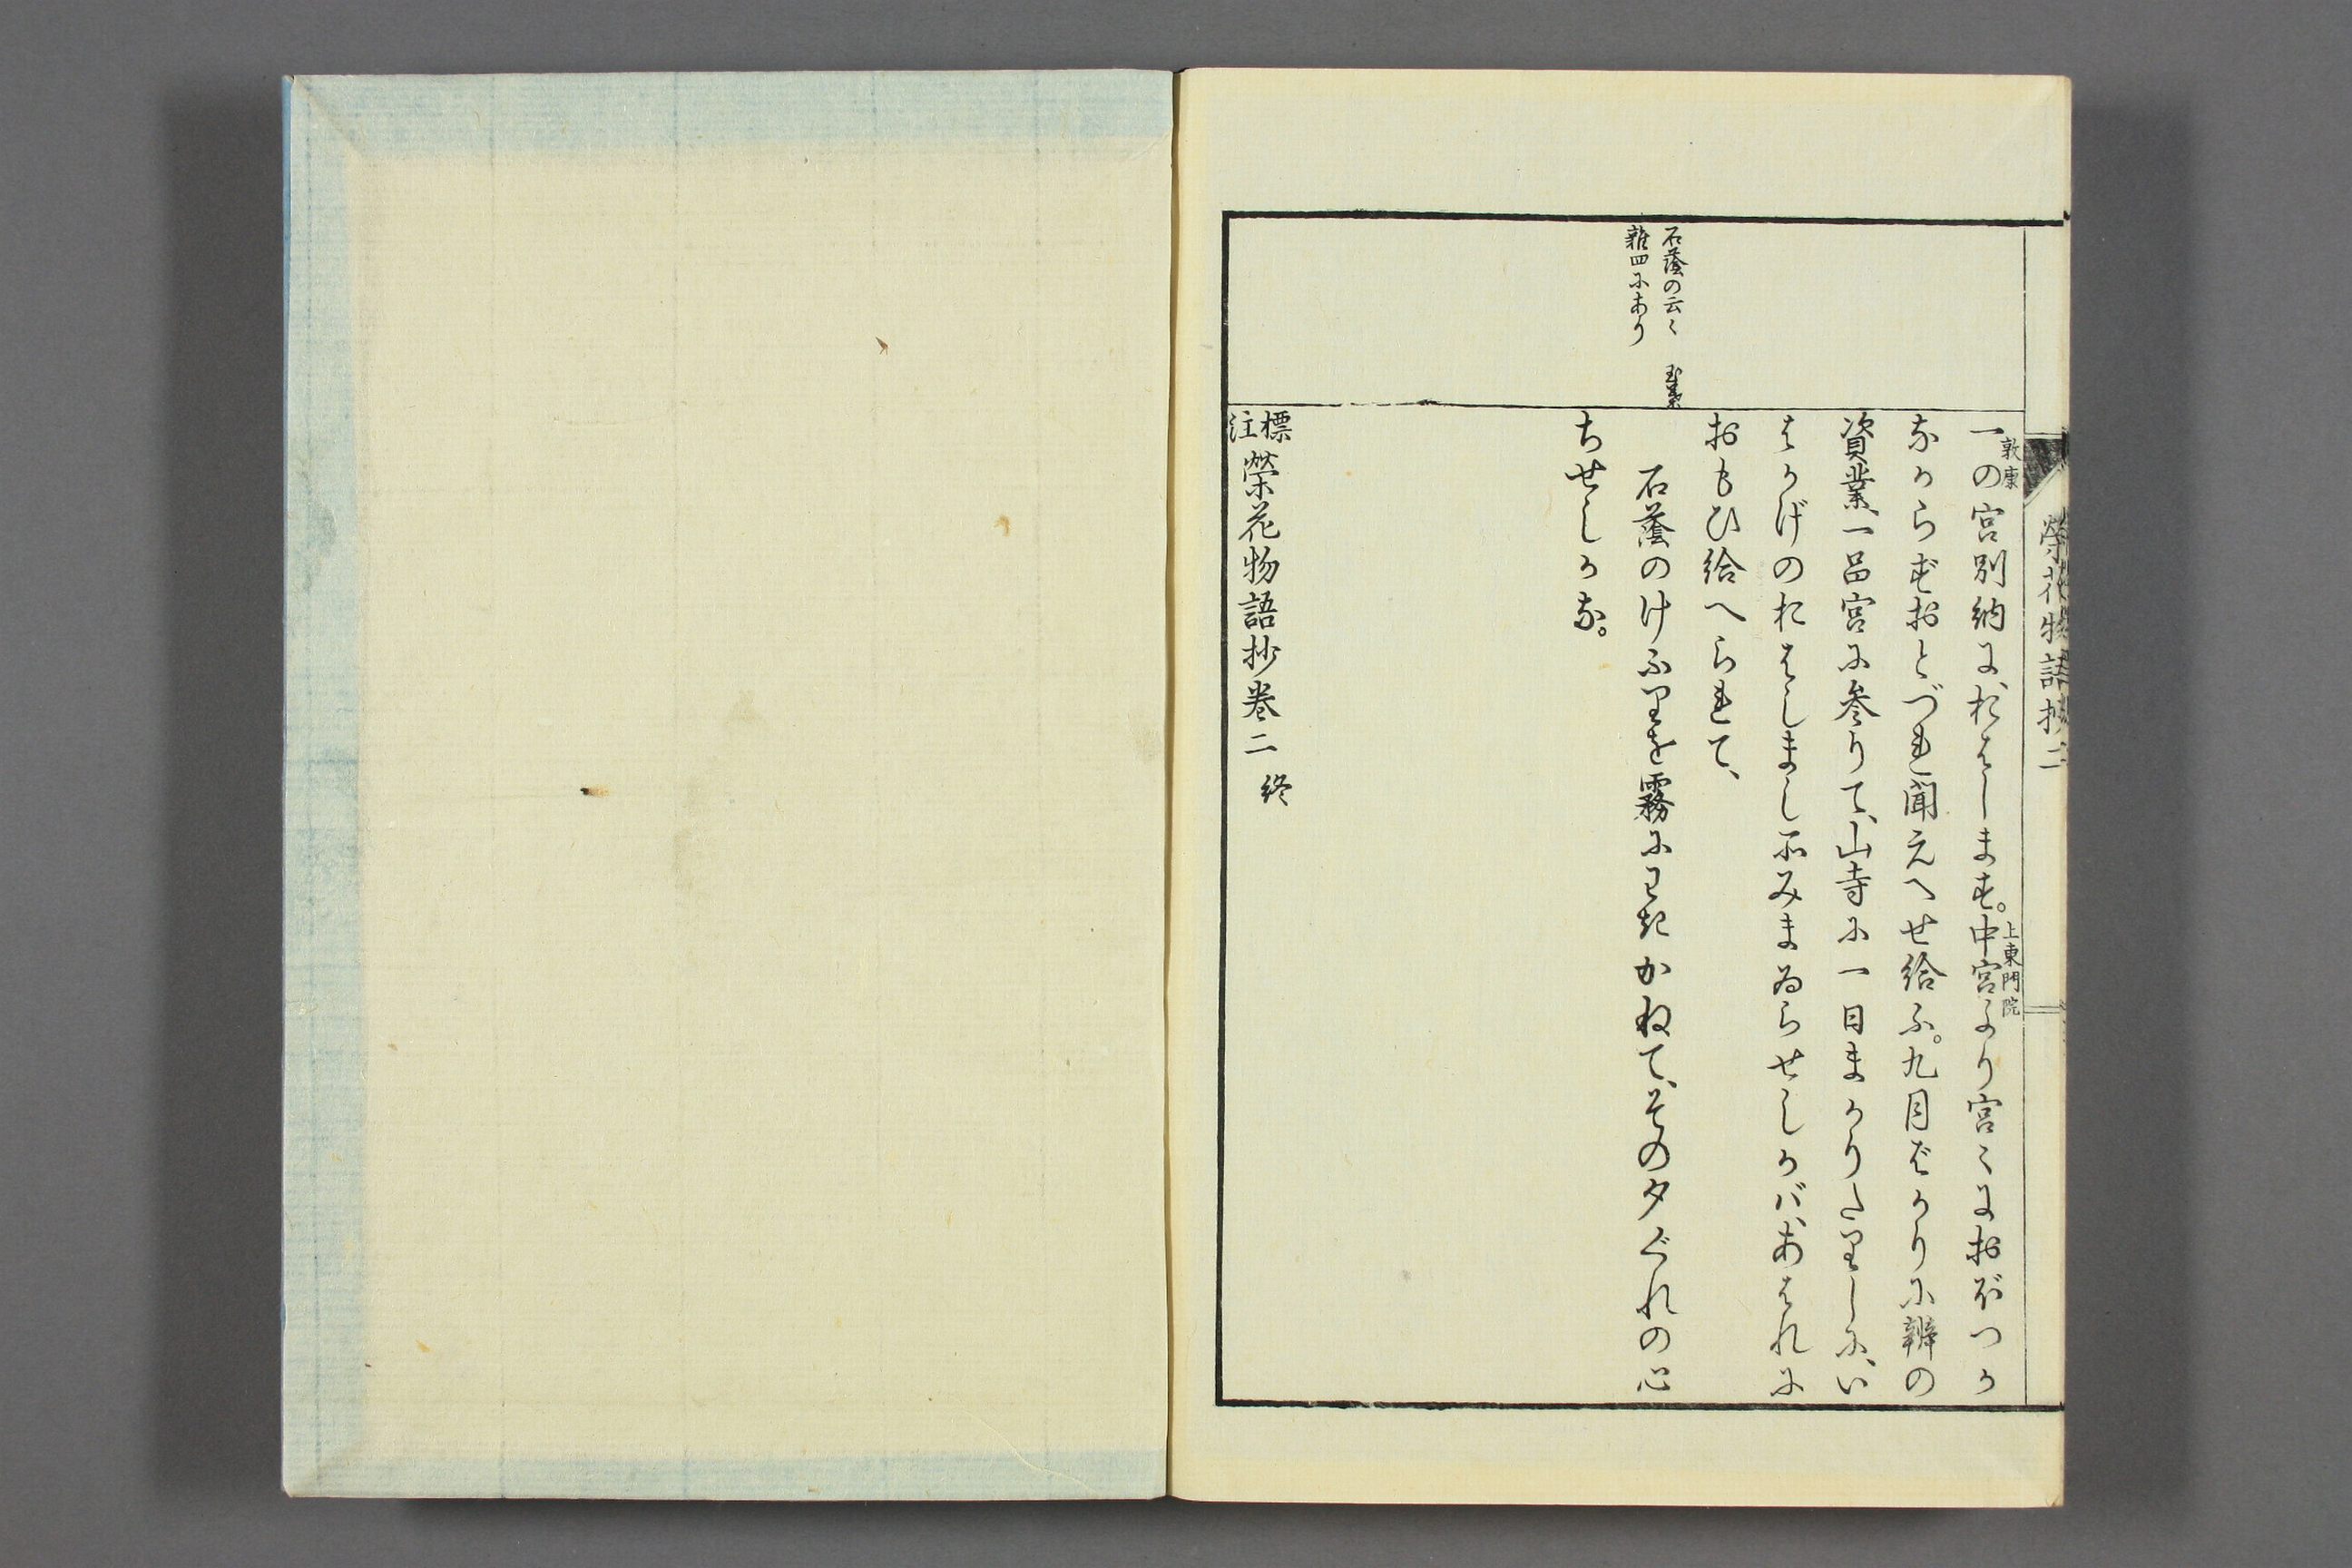 榮花物語抄二
敦康
上東門院
一の宮別納に、おはします。中宮より宮〻におぼつか
なからずおとづれ聞えへせ給ふ。九月ばかりに辨の
資業、一品宮に参りて、山寺に一日まかりたりしに、い
はかげのおはしまし所みまゐらせしかバ、あはれに
おもひ給へられて、
石蔭のけふりを霧にわきかねて、そのタぐれの心
ちせしかな。
石蔭の云〻　玉葉
雜四にあり
標注 榮花物語抄卷二 終